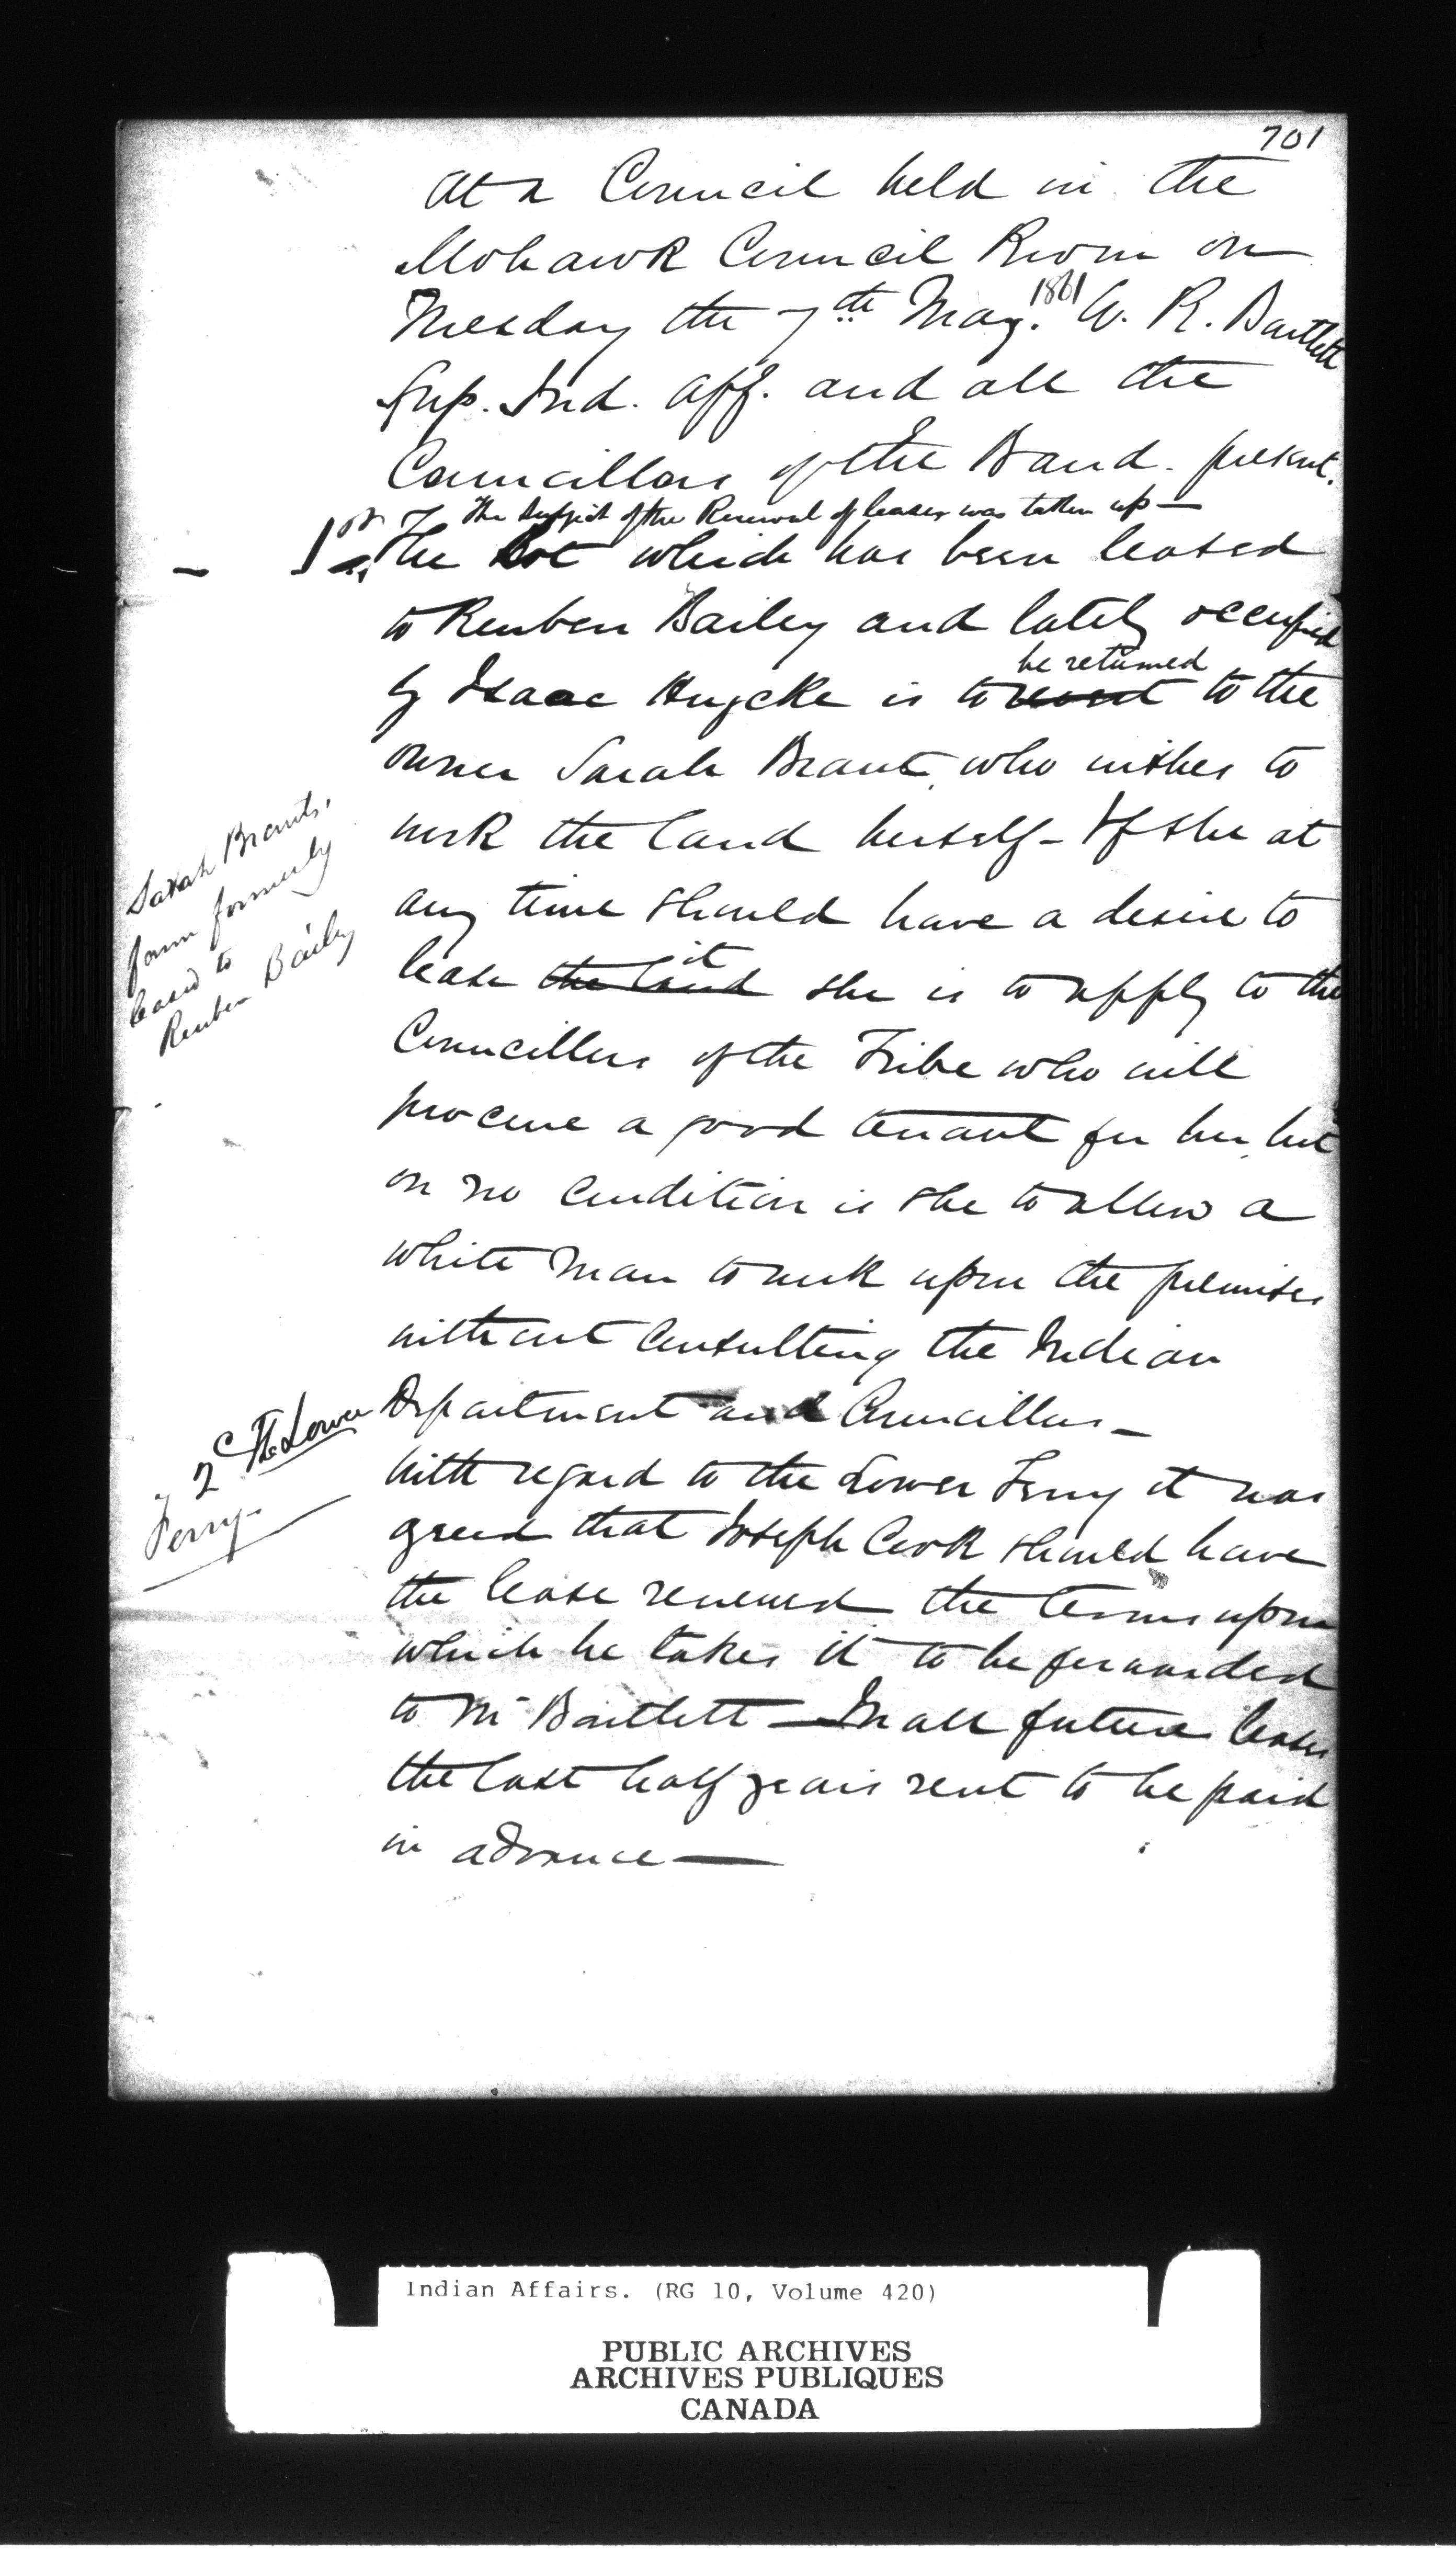 701
At a Council held in the
Mohawk Council Room on
Tuesday the 7th May. 1861 W. R. Bartlett
Sup. Ind. Aff. and all the
Councillors of the Band. present.
The Subject of the Renewal of leases was taken up —
1st The Lot which has been leased
to Reuben Bailey and lately occupied
be returned
by Isaac Huycke is to revert to the
owner Sarah Brant, who wishes to
work the land herself - If she at
any time should have a desire to
it
lease the land she is to apply to the
Councillors of the Tribe who will
procure a good tenant for her, but
on no condition is she to allow a
white man to work upon the premises
without consulting the Indian
Department and Councillors -
With regard to the Lower Ferry it was
greed that Joseph Cook should have
the lease renewed the terms upon
which he takes it to be forwarded
to Mr Bartlett — In all future leases
the last half years rent to be paid
in advance —
Sarah Brants,
farm formerly
leased to
Reuben Bailey
2 The Lower
Ferry.
Indian Affairs. (RG 10, Volume 420)
PUBLIC ARCHIVES
ARCHIVES PUBLIQUES
CANADA